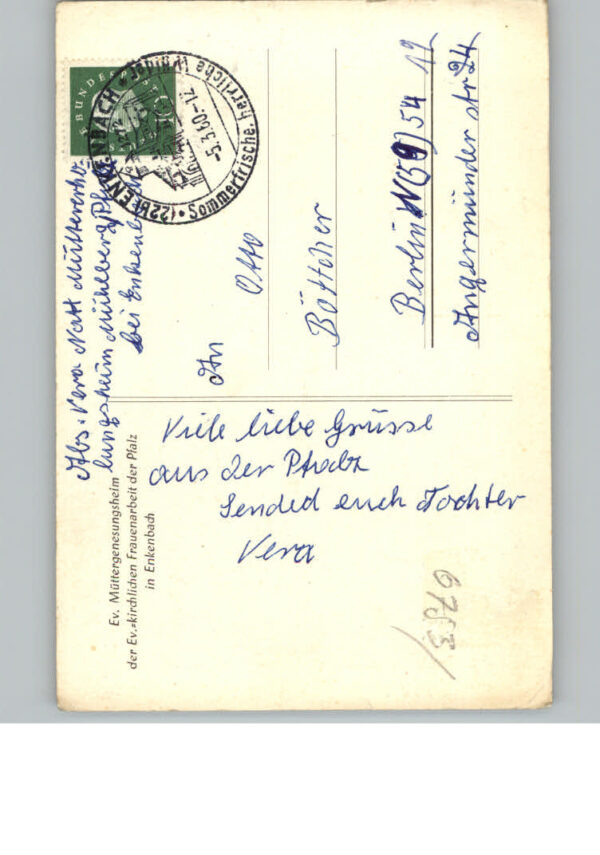 Abs. Vera Natt Müttererho-
lungsheim Mühlberg Pfalz
bei Enkenb
Ev. Müttergenesungsheim
der Ev.-kirchlichen Frauenarbeit der Pfalz
in Enkenbach
Viele liebe Grüsse
aus der Pfhalz
Sended euch Tochter
Vera
BUNDESPOST
(22b) ENKENBACH
-5.3.60.-12
Sommerfrische, herrliche Wälder
An
Otto
Böttcher
Berlin N(59) 54 12
Angermünder str 24
6753